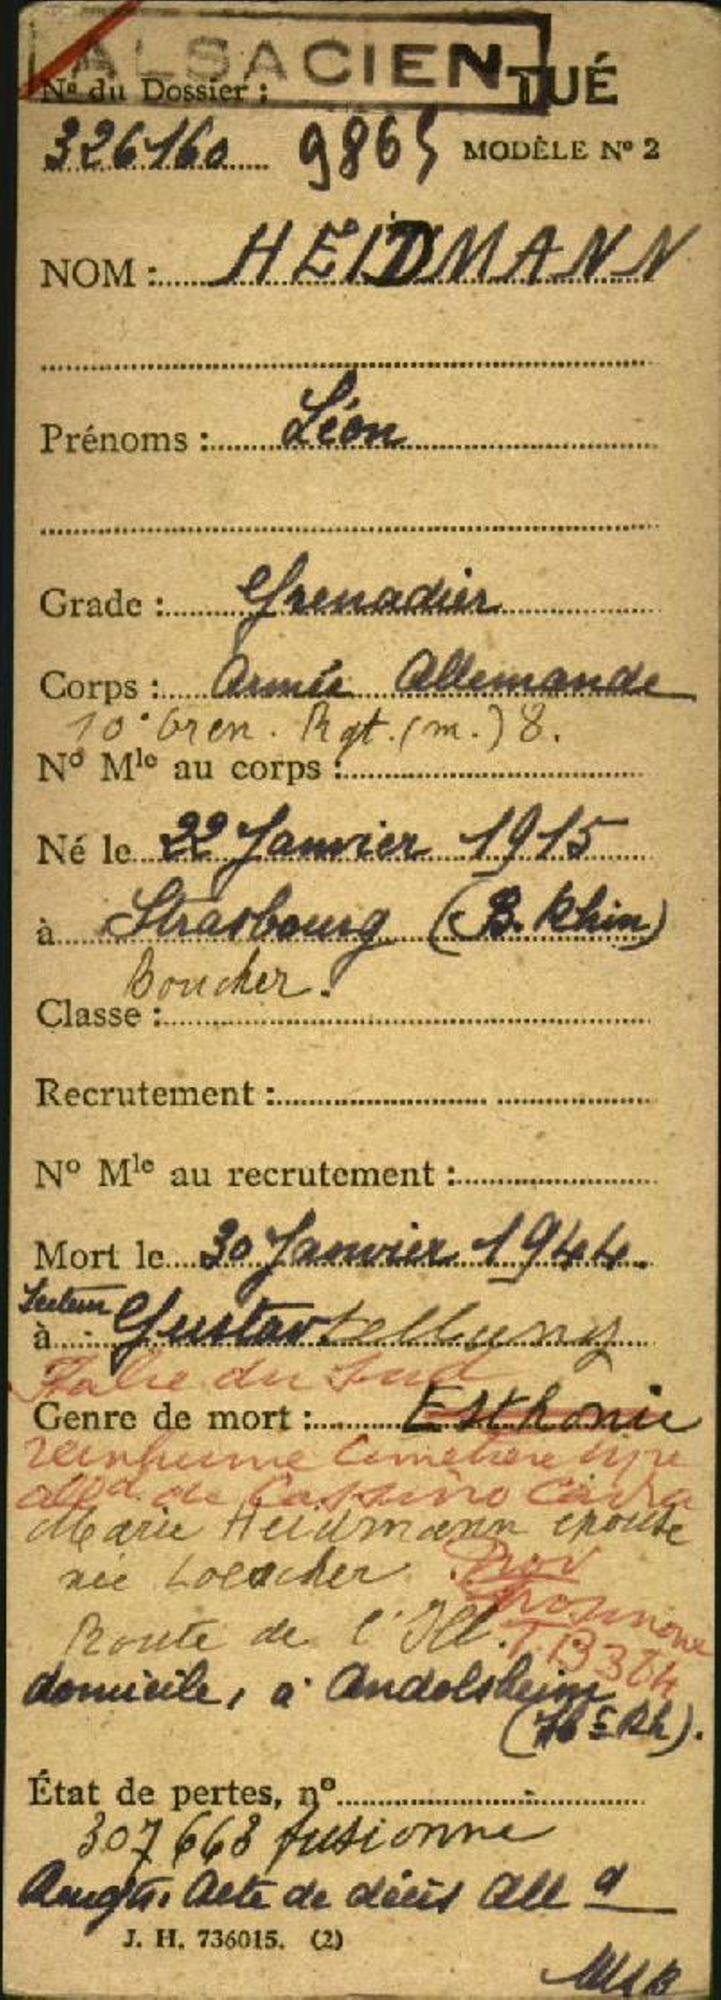 ALSACIEN TUÉ
Nº du Dossier :
326160 9865 MODÈLE Nº 2
NOM : HEIDMANN
Prénoms : Léon
Grade : Grenadier
Corps : Armée Allemande
10° Gren. Rgt. (m.) 8.
Nº Mle au corps :
Né le 22 Janvier 1915
à Strasbourg (B. Rhin)
Boucher.
Classe :
Recrutement :
Nº Mle au recrutement :
Mort le 30 Janvier 1944.
Secteur
à Gustavstellung
Italie du Sud
Genre de mort : Esthonie
reinhumé Cimetière
alld de Cassino Caira
Marie Heidmann épouse
née Loescher Prov
Frosinone
Route de l'Ill. T. B 384
domicile, à Andolsheim
(Ht Rh).
État de pertes, nº
307 668 fusionné
Acte de décès All d
J. H. 736015. (2)